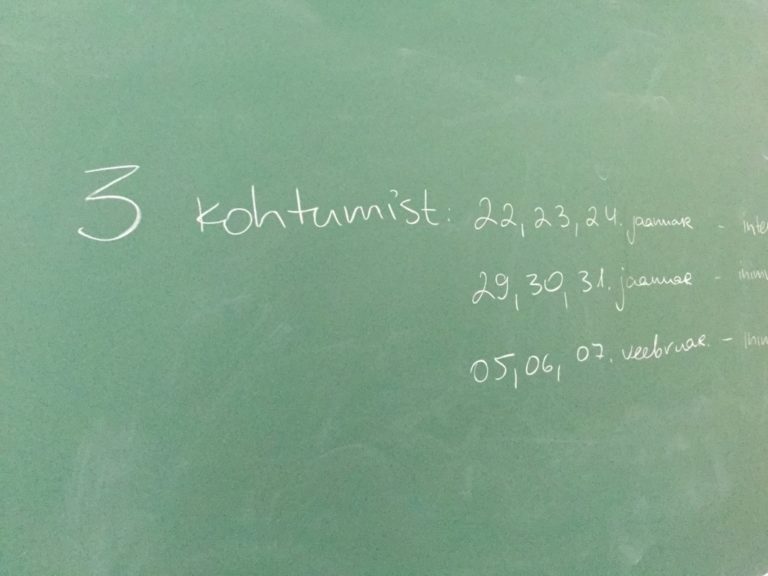 3 kohtumist: 22, 23, 24. jaanuar -
29, 30, 31. jaanuar -
05, 06, 07. veebruar. -